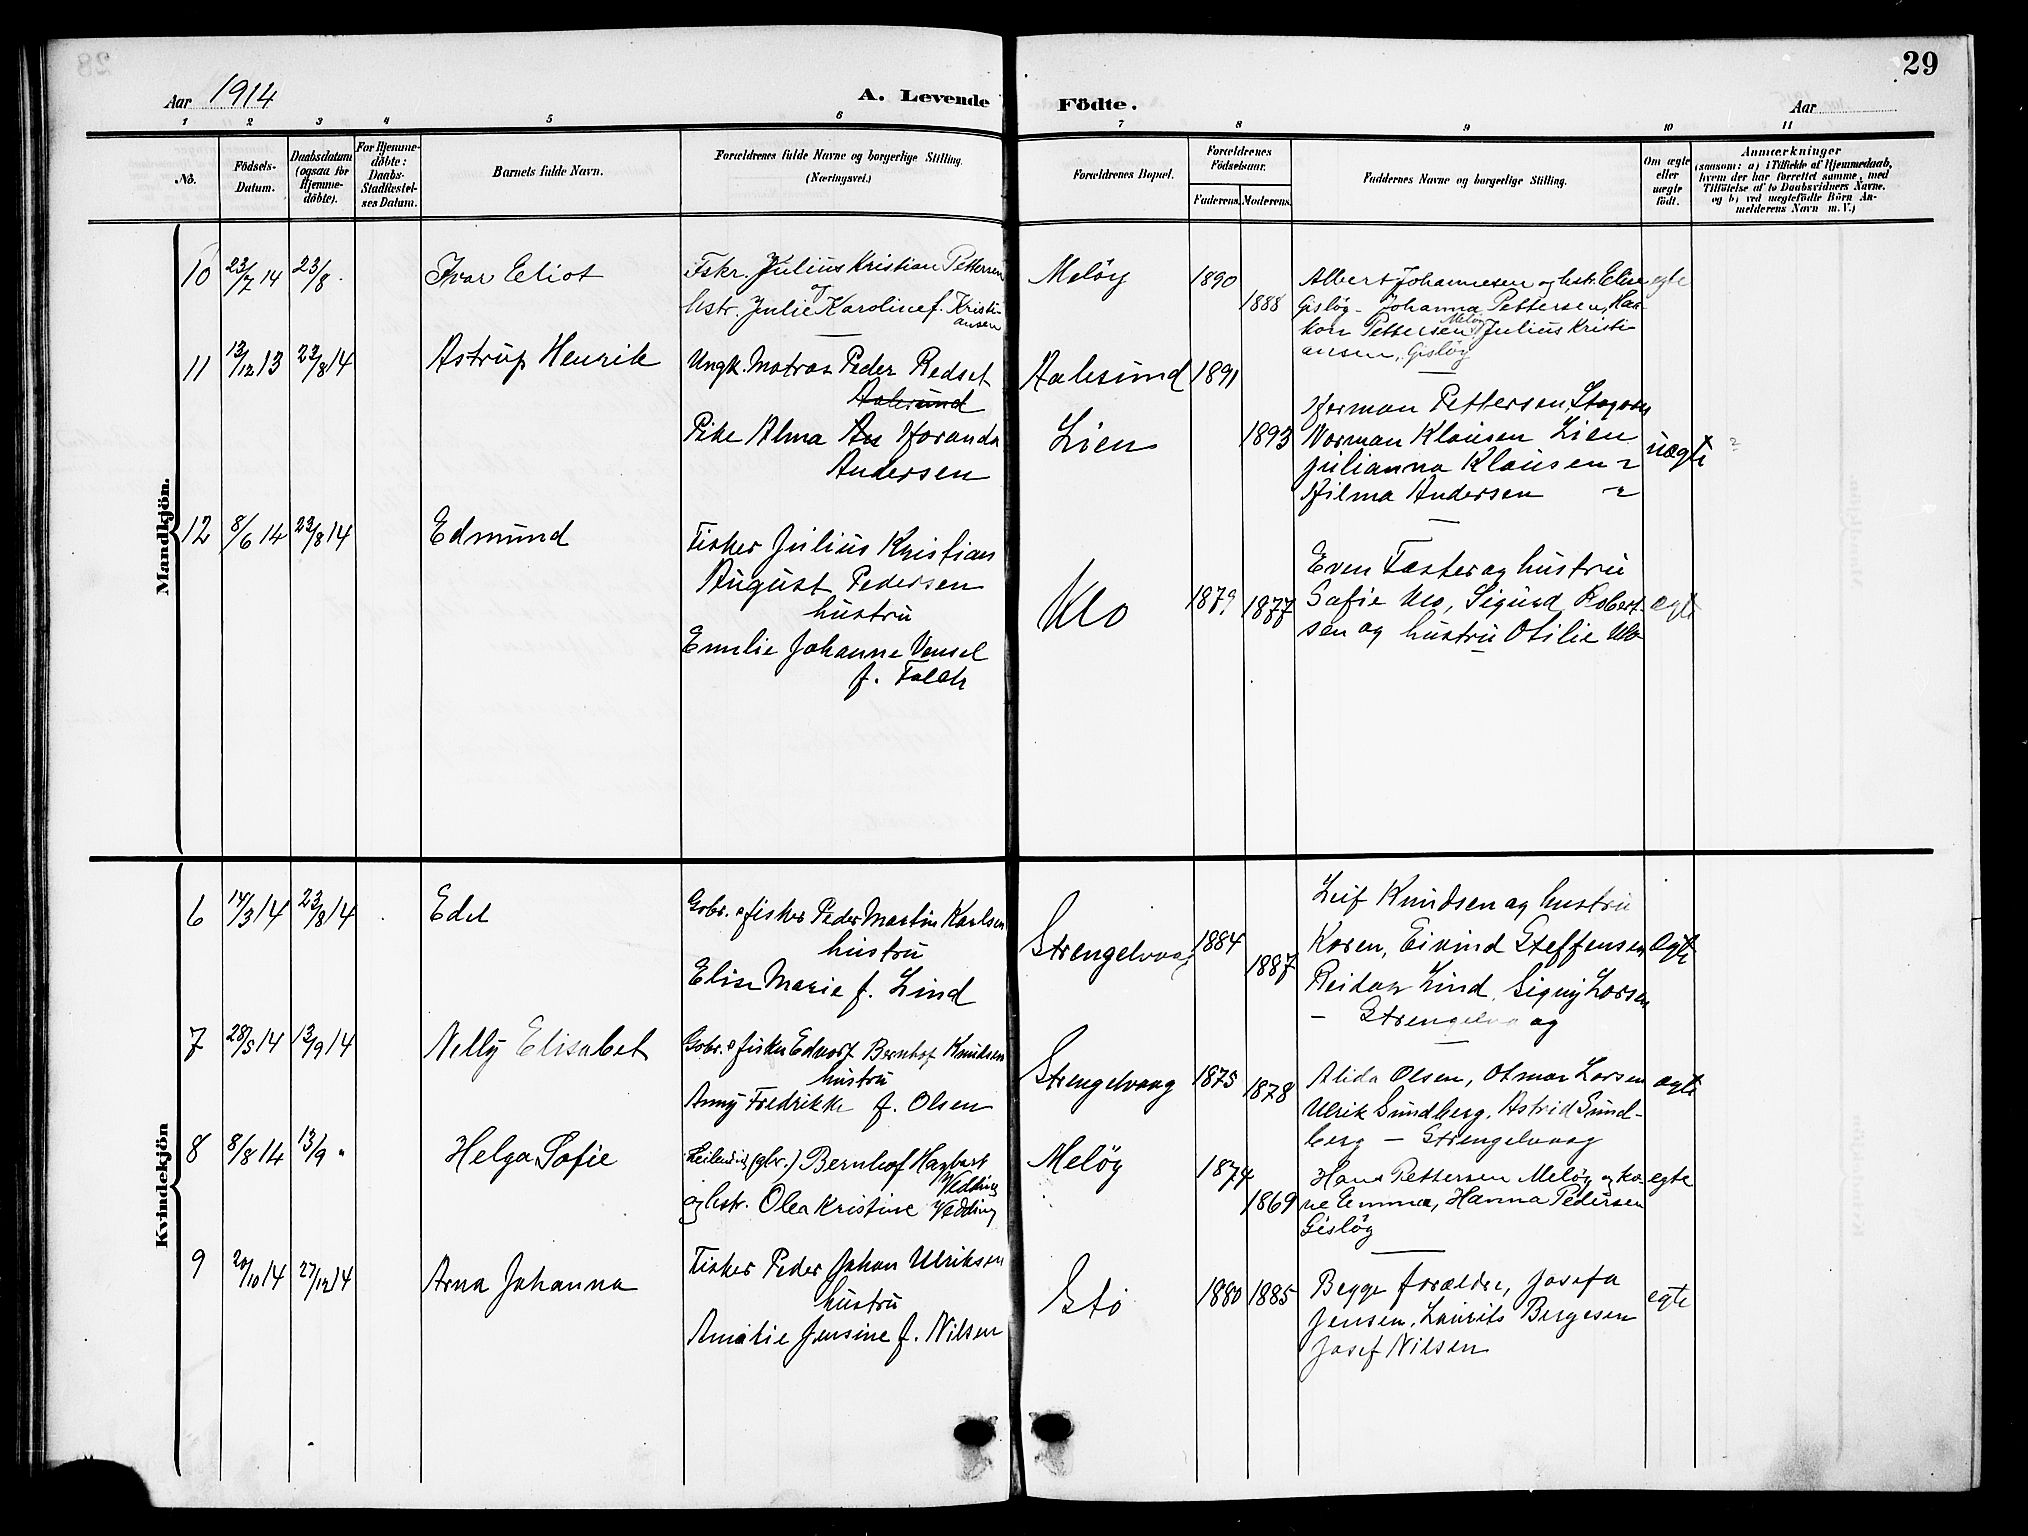 29
Aar 1914
A. Levende
Födte.
Aar
1 2 3 4 5 6 7 8 9 10 11
No.
Födsels-
Datum.
Daabsdatum
(ogsaa for
Hjemme-
døbte).
For Hjemme-
döbte:
Daabs-
Stadfæstel-
ses Datum.
Barnets fulde Navn.
Forældrenes fulde Navne og borgerlige Stilling.
(Næringsvei.)
Forældrenes Bopæl.
Forældrenes
Födselsaar.
Faderens.
Moderens.
Faddernes Navne og borgerlige Stilling.
Om ægte
eller
uægte
født.
Anmærkninger
(saasom: a) i Tilfælde af Hjemmedaab,
hvem der har forrettet samme, med
Tilföielse af to Daabsvidners Navne,
og b) ved uægtefödte Börn An-
melderens Navn m. V.)
Mandkjön.
10 23/7 14 23/8 Ivar Eliot
Fskr. Julius Kristian Pettersen
og
hstr. Julie Karoline f. Kristi-
ansen
Meløy 1890 1888
Albert Johannesen og hstr. Elise
Gisløy - Johanna Pettersen, Haa-
kon Pettersen Meløy, Julius Kristi-
ansen, Gisløy
egte
11 13/12 13 23/8 14 Astrup Henrik
Ungk. Matros Peder Redset
Aalesund
Pike Alma An Horanda
Andersen
Aalesund 1891
Lien 1893
Herman Pettersen,
Norman Klausen Lien
Julianna Klausen "
Hilma Andersen "
uægte
12 8/6 14 23/8 14 Edmund
Fisker Julius Kristian
August Pedersen
hustru
Emelie Johanne Vensel
f. Falch
Klo 1879 1877
Even Falster og hustru
Safie Klo, Sigurd Robert-
sen og hustru Otilie Klo
ægte
Kvindekjön
6 14/3 14 23/8 14 Edel
Gbr. & fisker Peder Martin Karlsen
hustru
Elise Marie f. Lind
Strengelvaag 1884 1887
Leif Knudsen og hustru
Karen, Eivind Steffensen
Reidar Lind, Signy Larsen
- Strengelvaag
Egte
7 28/5 14 13/9 14 Nelly Elisabet
Gbr. & fisker Edvart Bernhof Knudsen
hustru
Anny Fredrikke f. Olsen
Strengelvaag 1875 1878
Alida Olsen, Otmar Larsen
Ulrik Sundberg, Astrid Sund-
berg - Strengelvaag
ægte
8 8/8 14 13/9 " Helga Sofie
Leilending (gbr.) Bernhof Hagbart
Vedding
og hstr. Olea Kristine Vedding
Meløy 1874 1869
Hans Pettersen Meløy og ko-
ne Emma, Hanna Pedersen
Gisløy
egte
9 20/10 14 27/12 14 Arna Johanna
Fisker Peder Johan Ulriksen
hustru
Amalie Jensine f. Nilsen
Stø 1880 1885
Begge forældre, Josefa
Jensen, Laurits Bergesen
Josef Nilsen
egte